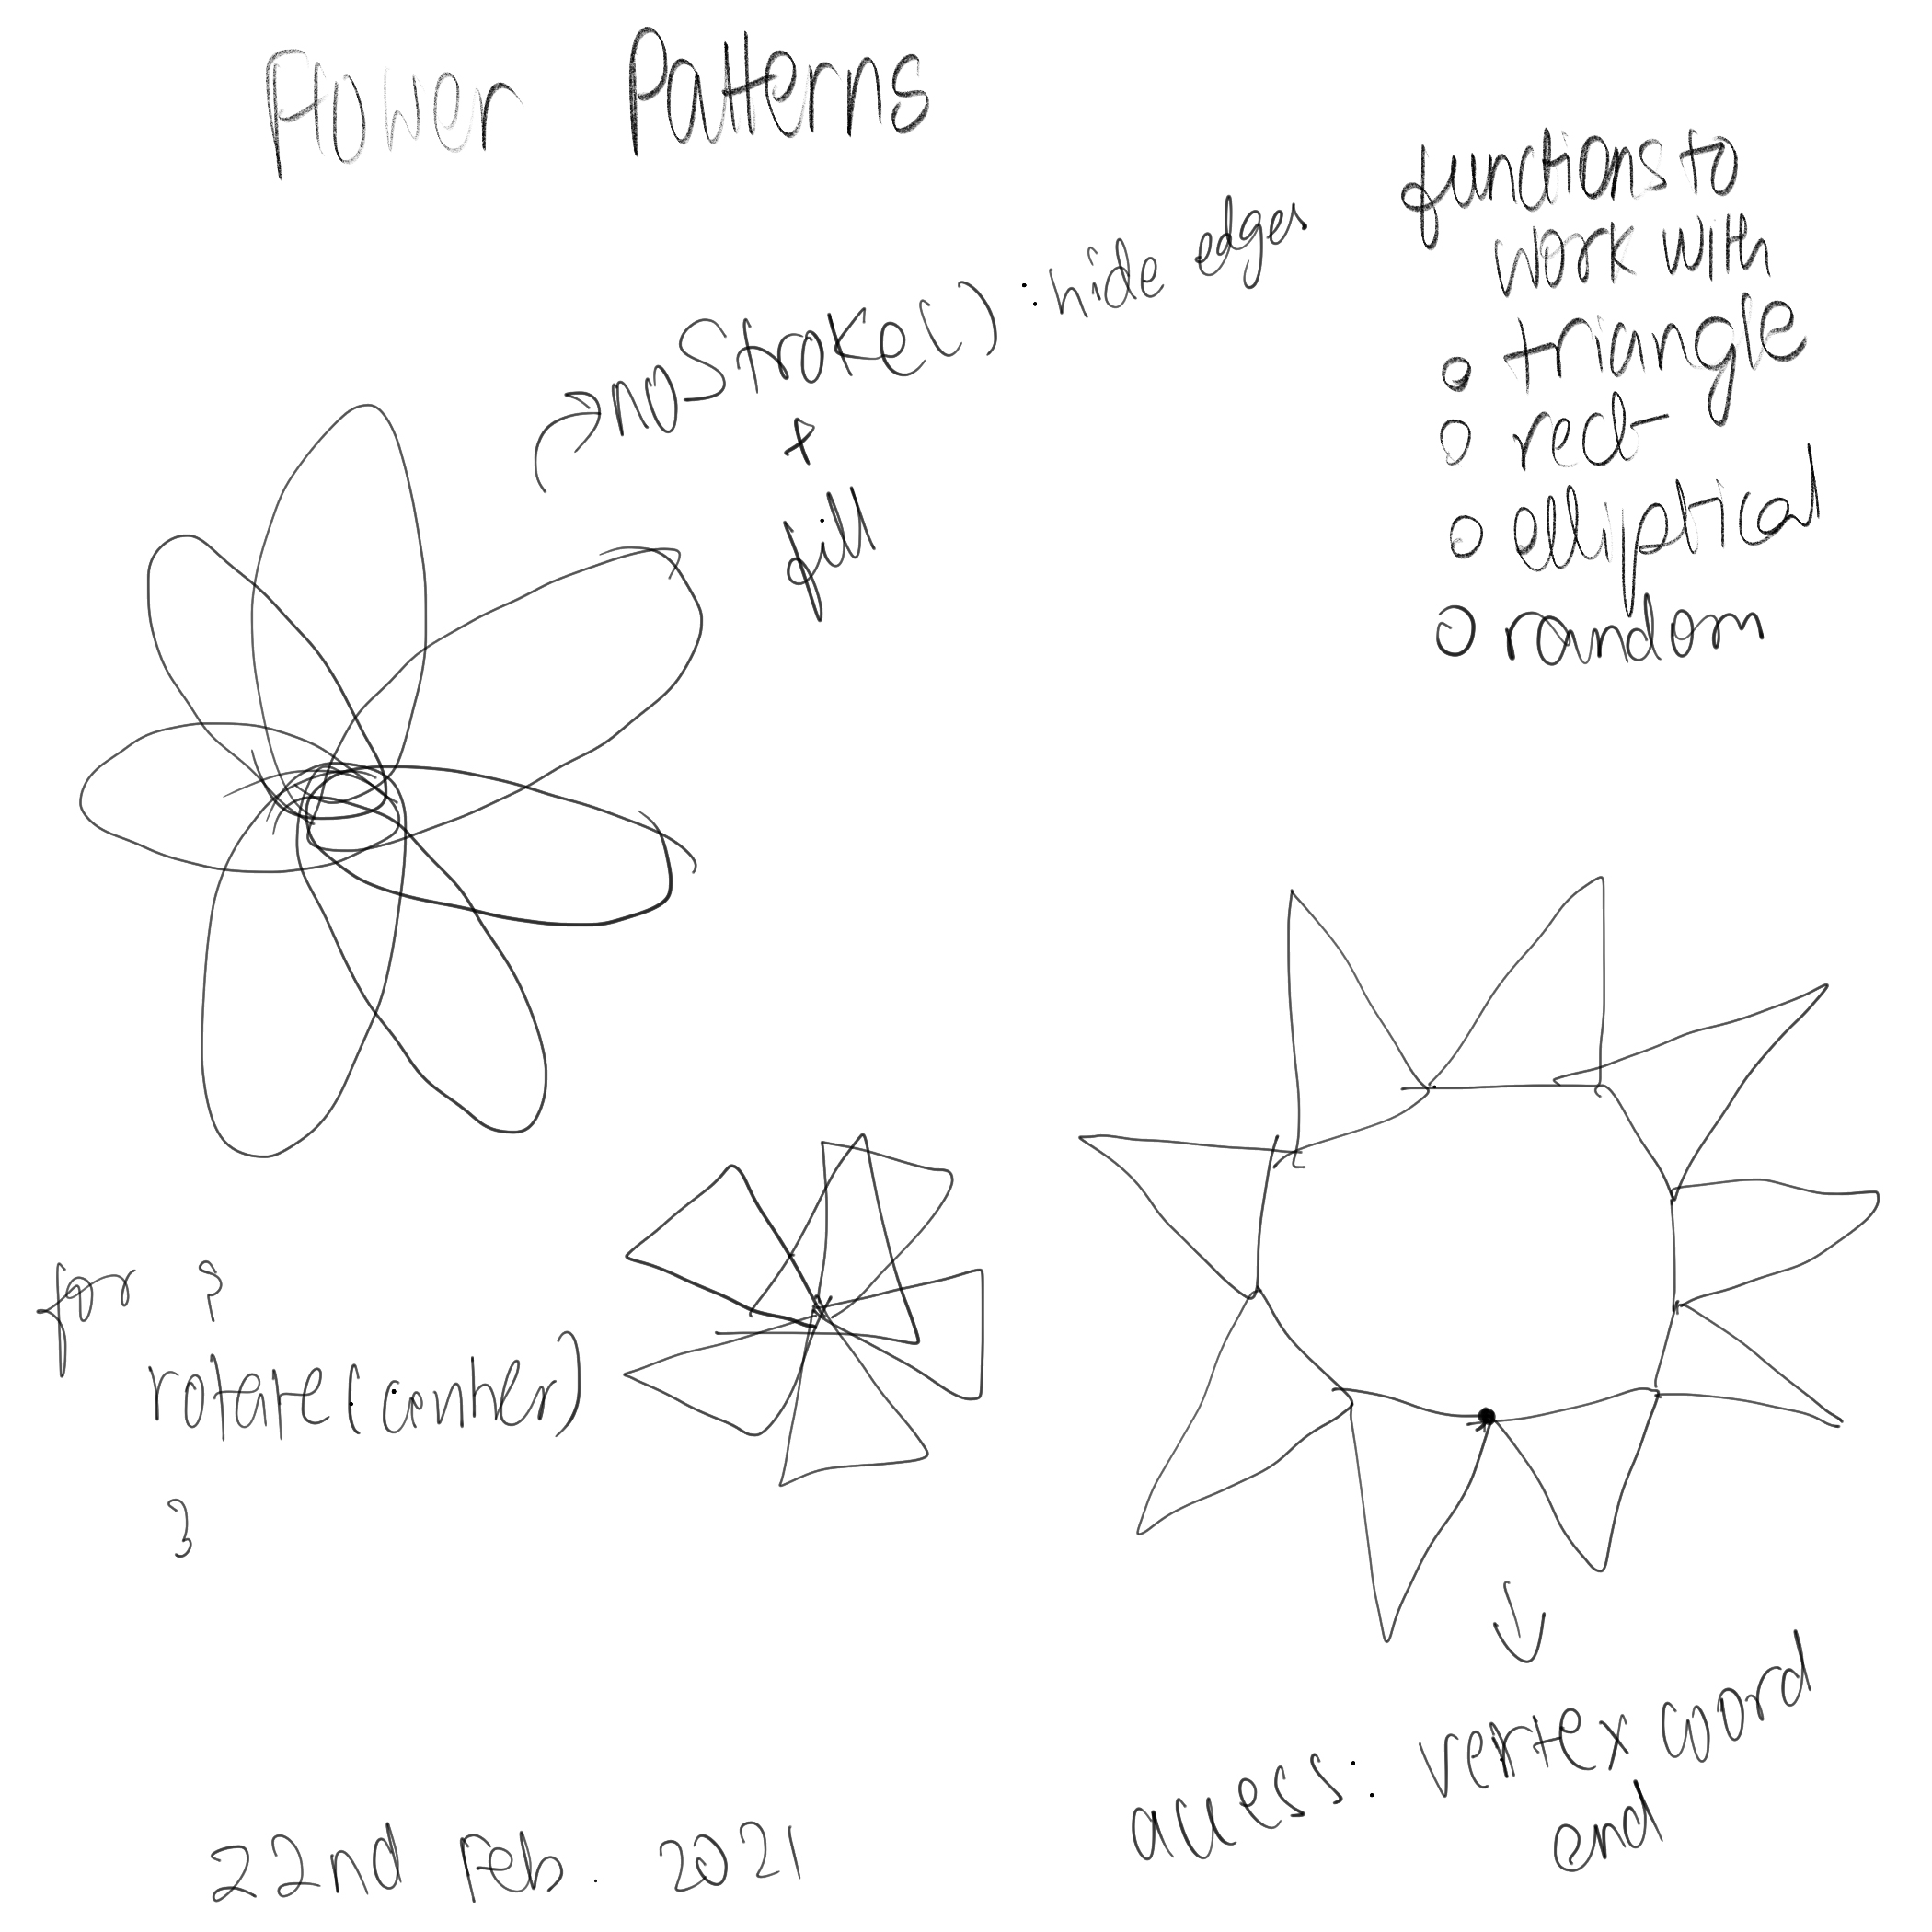 Flower Patterns
functions to
work with
o triangle
o rect
o elliptical
o random
noStroke() : hide edges
+
fill
for {
rotate(center)
}
access: vertex coord
and
22nd Feb. 2021